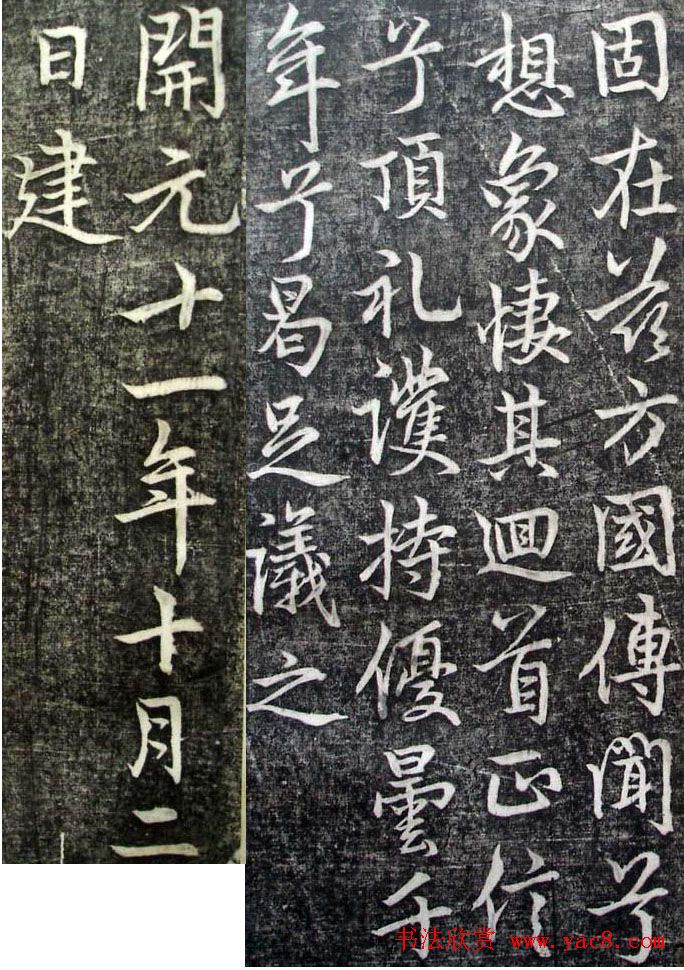 固在茲方國傳聞兮
想象悽其迴首正信
兮頂礼護持優曇千
年兮曷足議之
開元十一年十月二
日建
书法欣赏 www.yac8.com